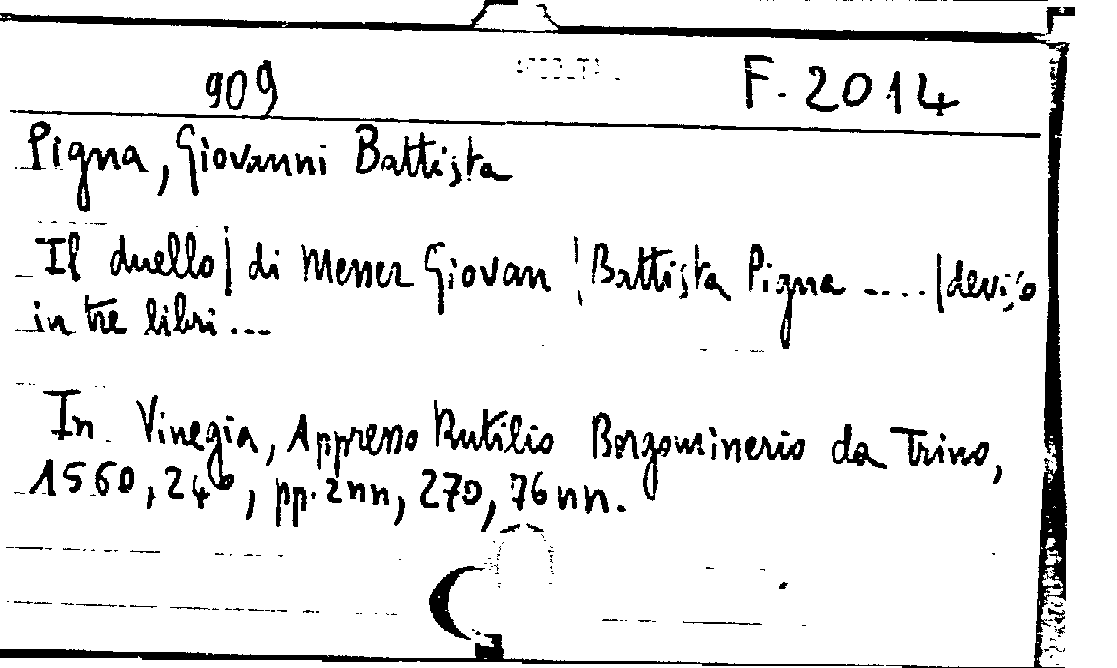 909 F. 2014
Pigna, Giovanni Battista
Il duello | di Messer Giovan | Battista Pigna ..... | deviso
in tre libri ...
In Vinegia, Appresso Rutilio Borgominerio da Trino,
1560, 24°, pp. 2nn, 270, 76 nn.